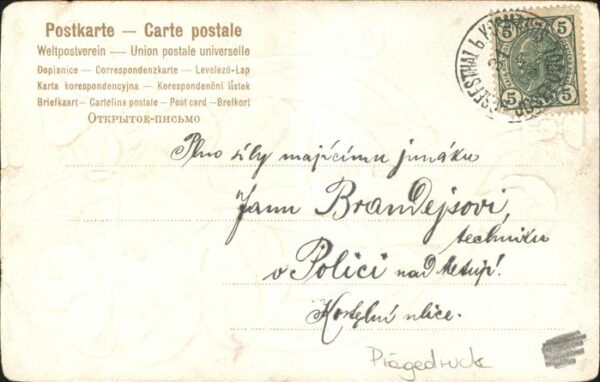 Postkarte — Carte postale
Weltpostverein — Union postale universelle
Dopisnice — Correspondenzkarte — Levelező-Lap
Karta korespondencyjna — Korespondenčni listek
Briefkaart — Cartolina postale — Post card — Brefkort
Открытое-письмо
5 5
5 5
Plno síly majícímu junáku
Janu Brandejsovi,
techniku
v Polici nad Metují!
Kostelní ulice.
Prägedruck